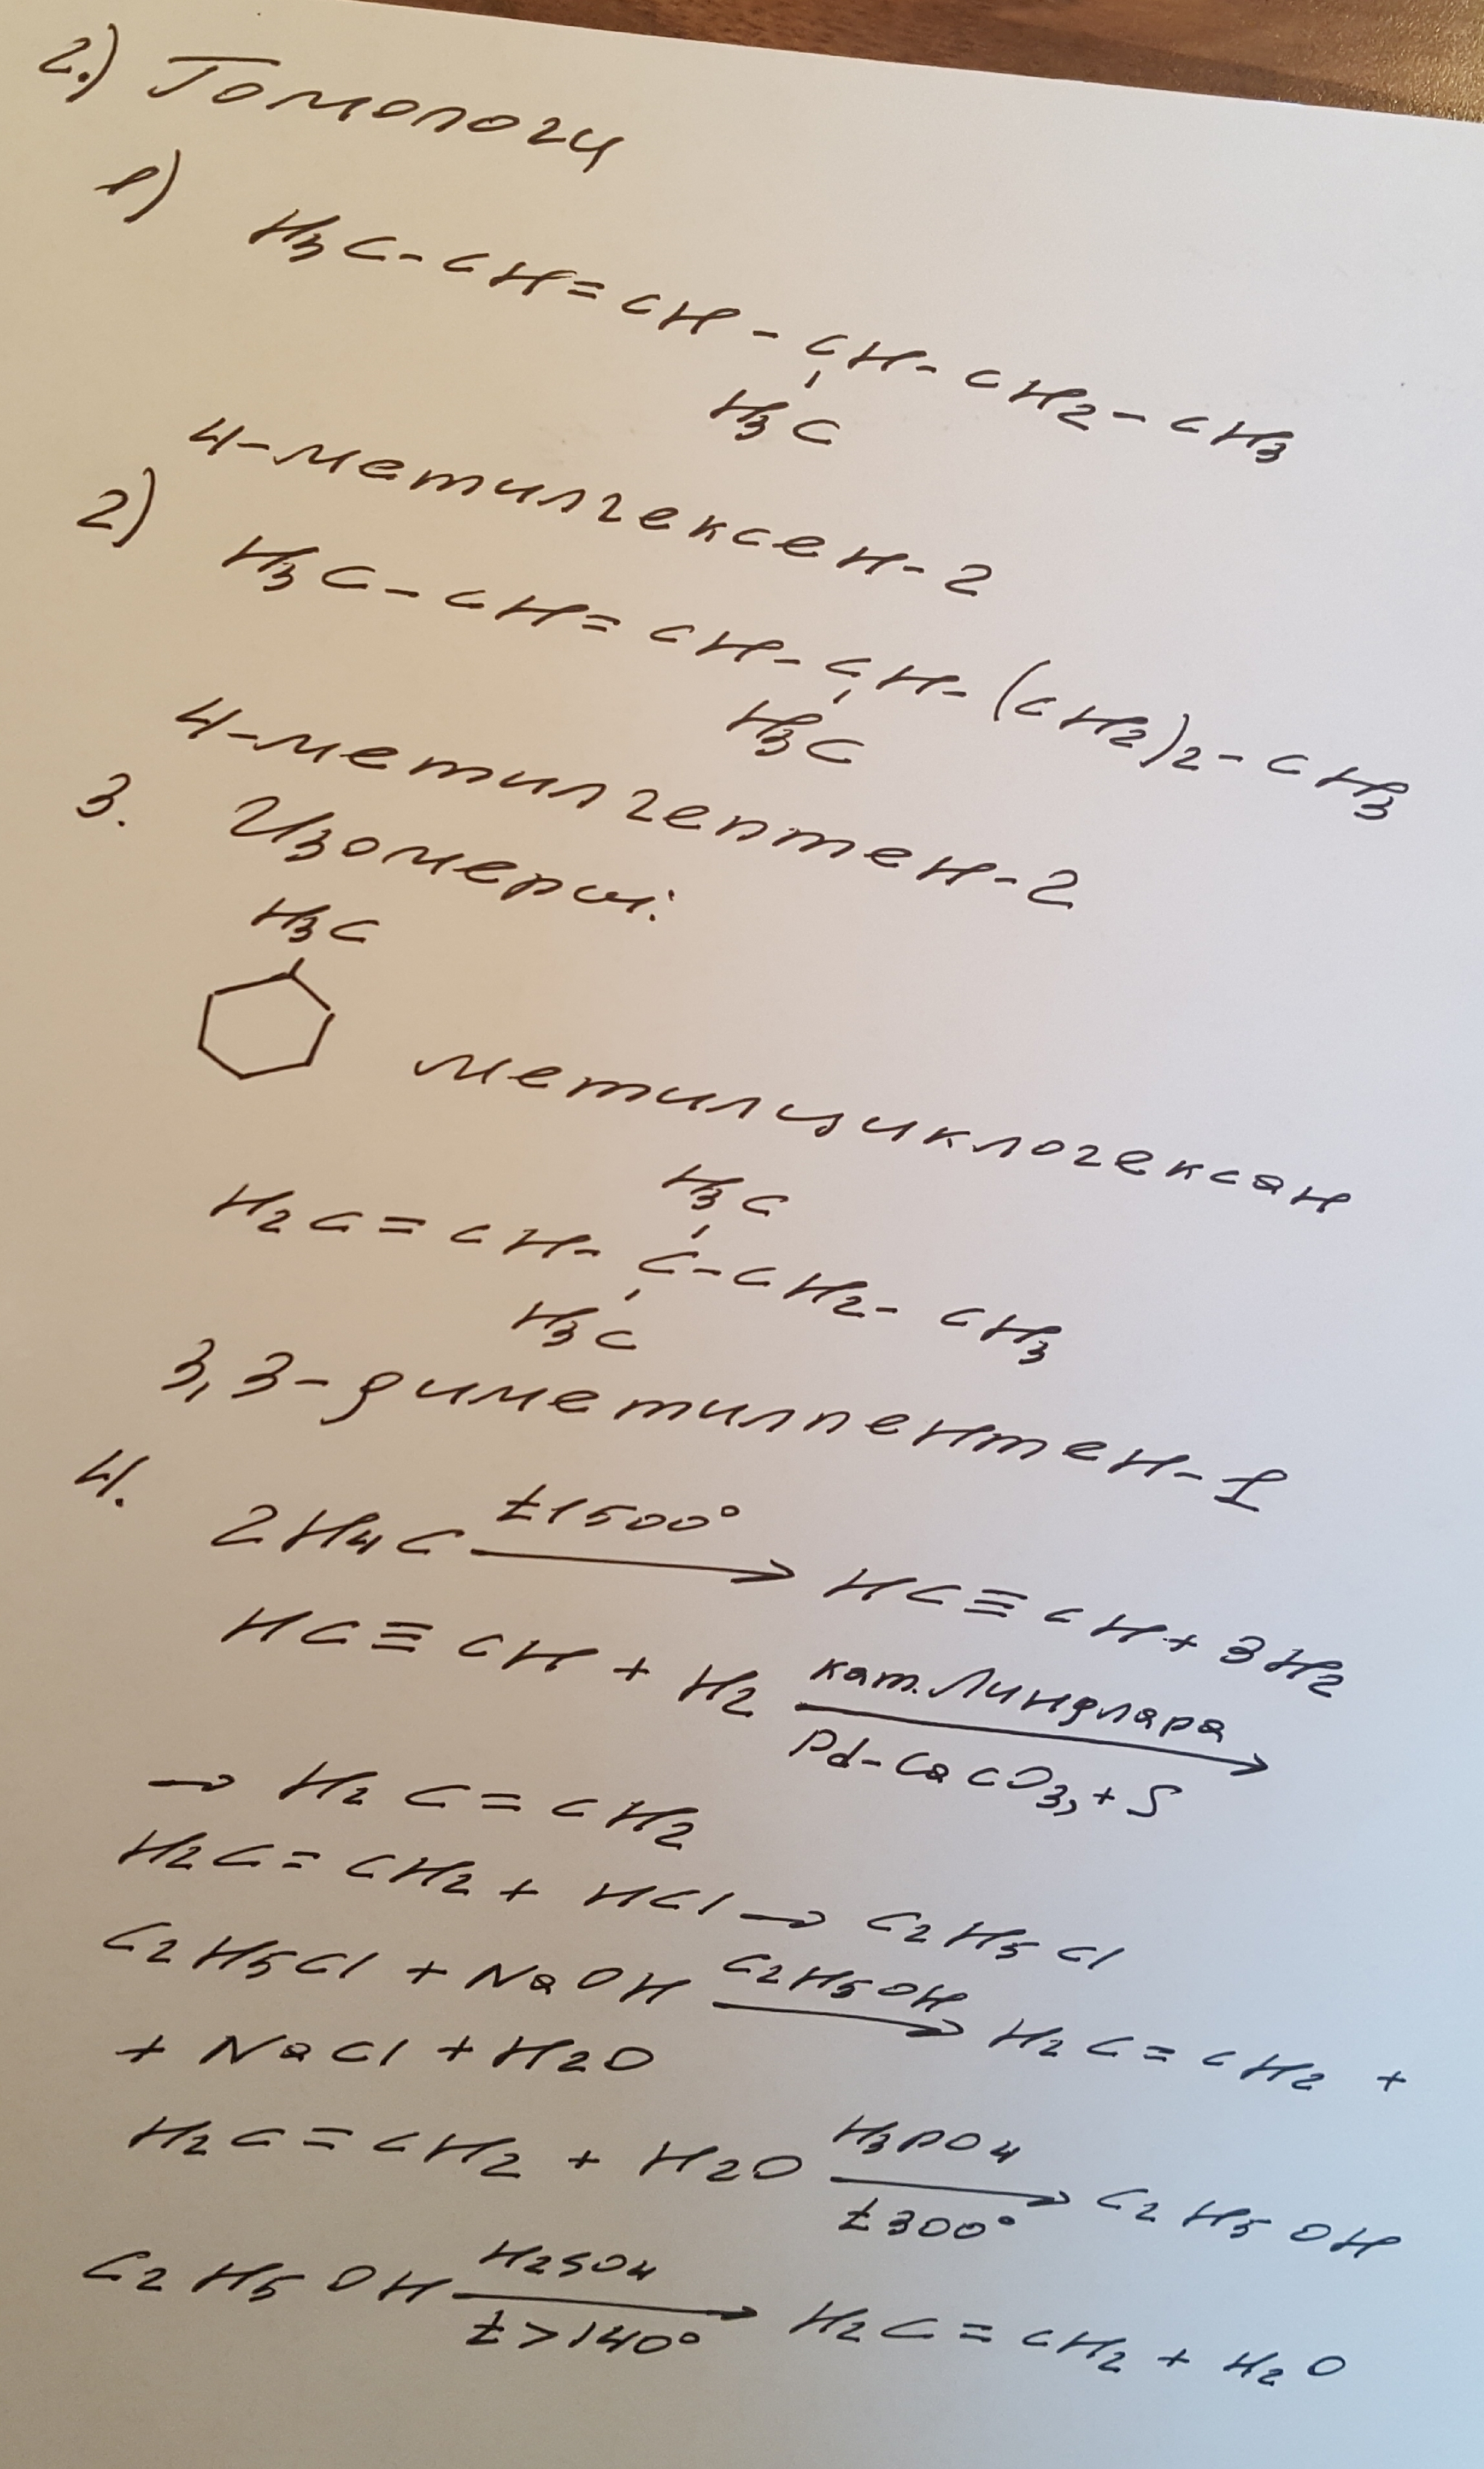 2.) Гомологи
1)
H3C-CH=CH-CH-CH2-CH3
H3C
4-метилгексен-2
2)
H3C-CH=CH-CH-(CH2)2-CH3
H3C
4-метилгептен-2
3. Изомеры:
H3C
метилциклогексан
H3C
H2C=CH-C-CH2-CH3
H3C
3,3-диметилпентен-1
4.
2H4C t1500° → HC≡CH+3H2
HC≡CH+H2 кат. Линдлара →
Pd-CaCO3,+S
→ H2C=CH2
H2C=CH2+HCl→C2H5Cl
C2H5Cl+NaOH C2H5OH → H2C=CH2 +
+NaCl+H2O
H2C=CH2+H2O H3PO4 → C2H5OH
t300°
C2H5OH H2SO4 → H2C=CH2+H2O
t>140°